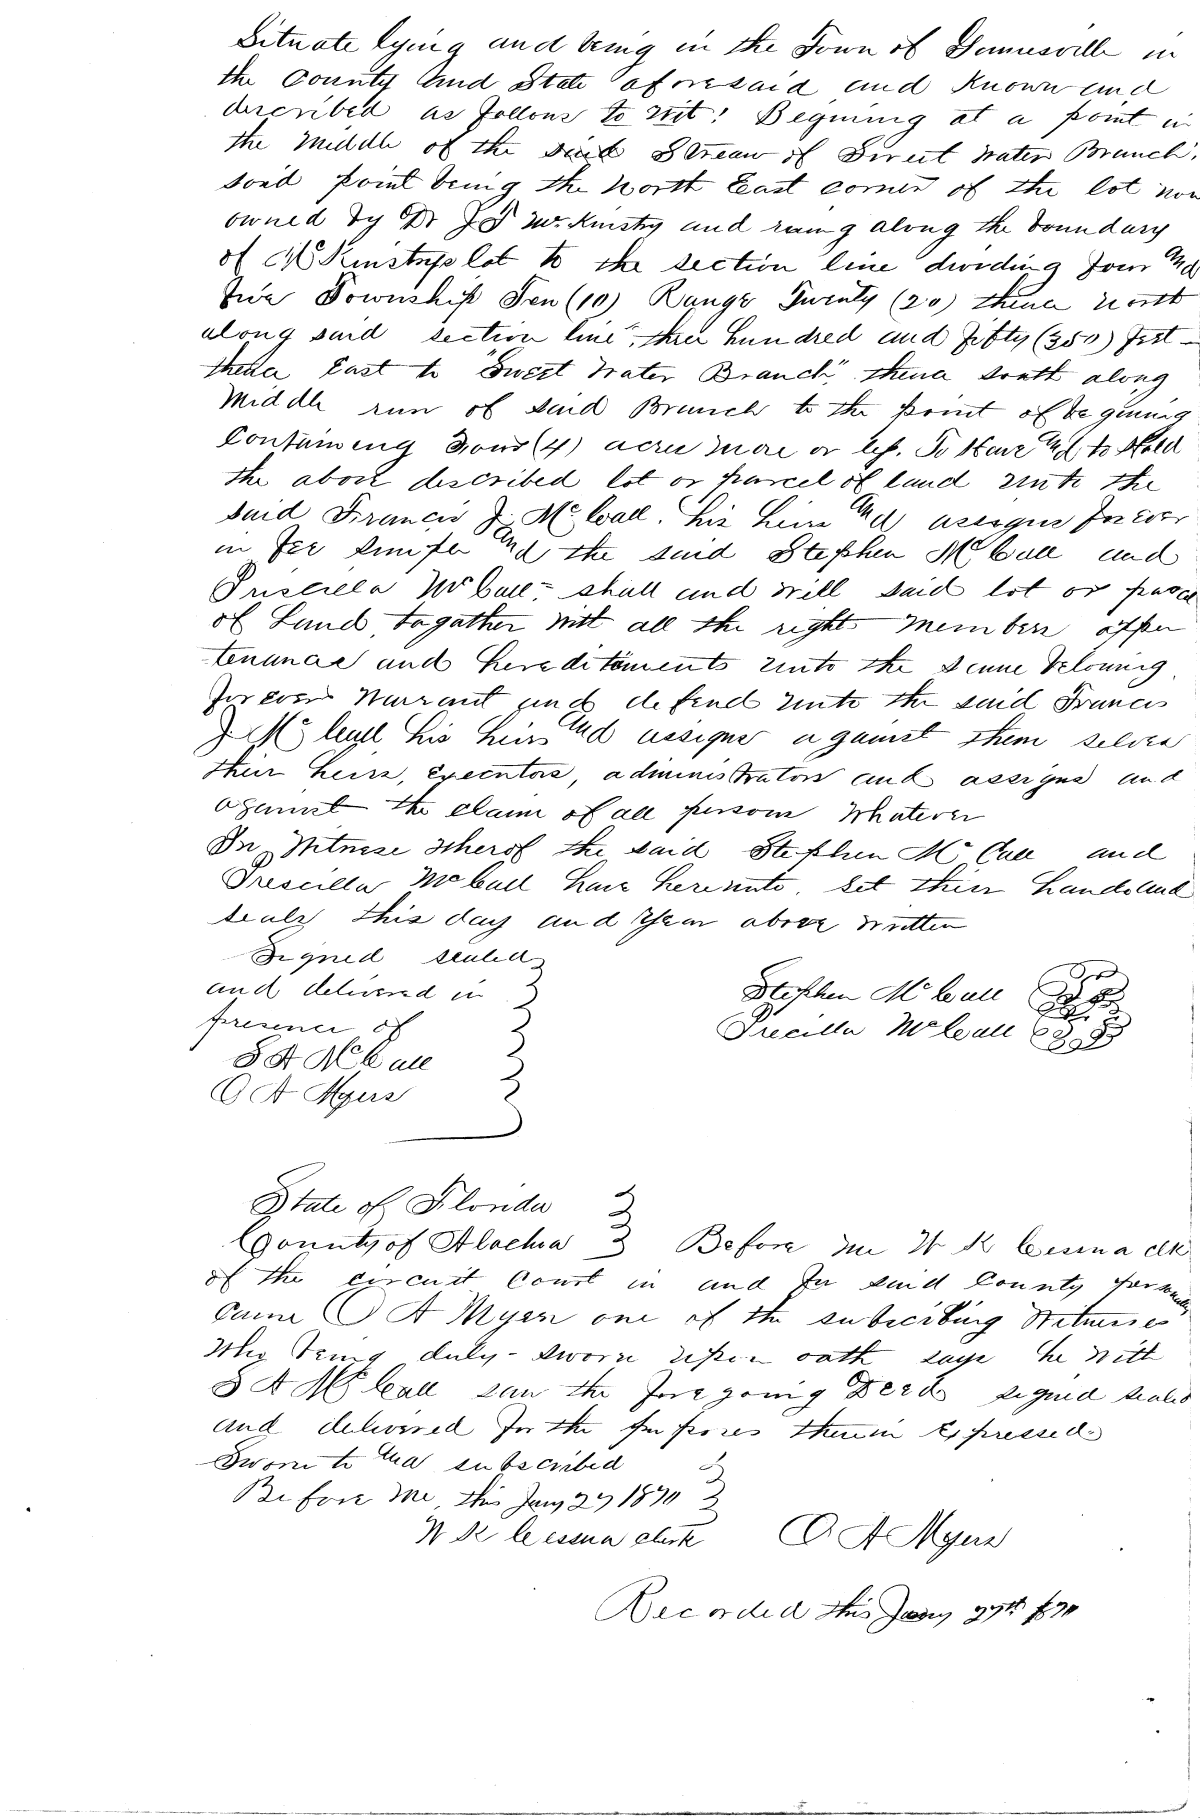 Situate lying and being in the Town of Gainesville in
the County and State aforesaid and Known and
described as follows to wit: Begining at a point in
the Middle of the said Stream of Sweet Water Branch,
said point being the North East corner of the lot now
owned by Dr J F McKinstry and runing along the boundary
of McKinstrys lot to the section line dividing four and
five Township Ten (10) Range Twenty (20) thence North
along said section line three hundred and fifty (350) feet
thence East to "Sweet Water Branch," thence South along
Middle run of said Branch to the point of begining
Containeng Four (4) acres more or less. To Have And to Hold
the above described lot or parcel of land unto the
said Francis J. McCall, his heirs And assigns forever
in Fee Simple And the said Stephen McCall and
Priscilla McCall shall and will said lot or parcel
of Land togather with all the right Members appen
tenances and hereditaments unto the same beloning
forever Warrant and defend unto the said Francis
J. McCall his heirs And assigns against them selves
their heirs, executors, administrators and assigns and
against the claim of all persons Whatever
In Witness Wherof the said Stephen McCall and
Prescilla McCall have hereunto set their hands and
seals this day and Year above written
Signed sealed
and delivered in
presence of
Stephen McCall
Precilla McCall
S A McCall
O A Myers
State of Florida
County of Alachua Before me W K Cessna clk
of the circuit Court in and for said County personally
came O A Myers one of the subscribing Witnesses
Who being duly sworn upon oath says he with
S A McCall saw the foregoing Deed signed sealed
and delivered for the purposes therein Expressed
Sworn to And subscribed
Before Me, this Jany 27 1870
W K Cessna clerk O A Myers
Recorded this Jany 27th 1870